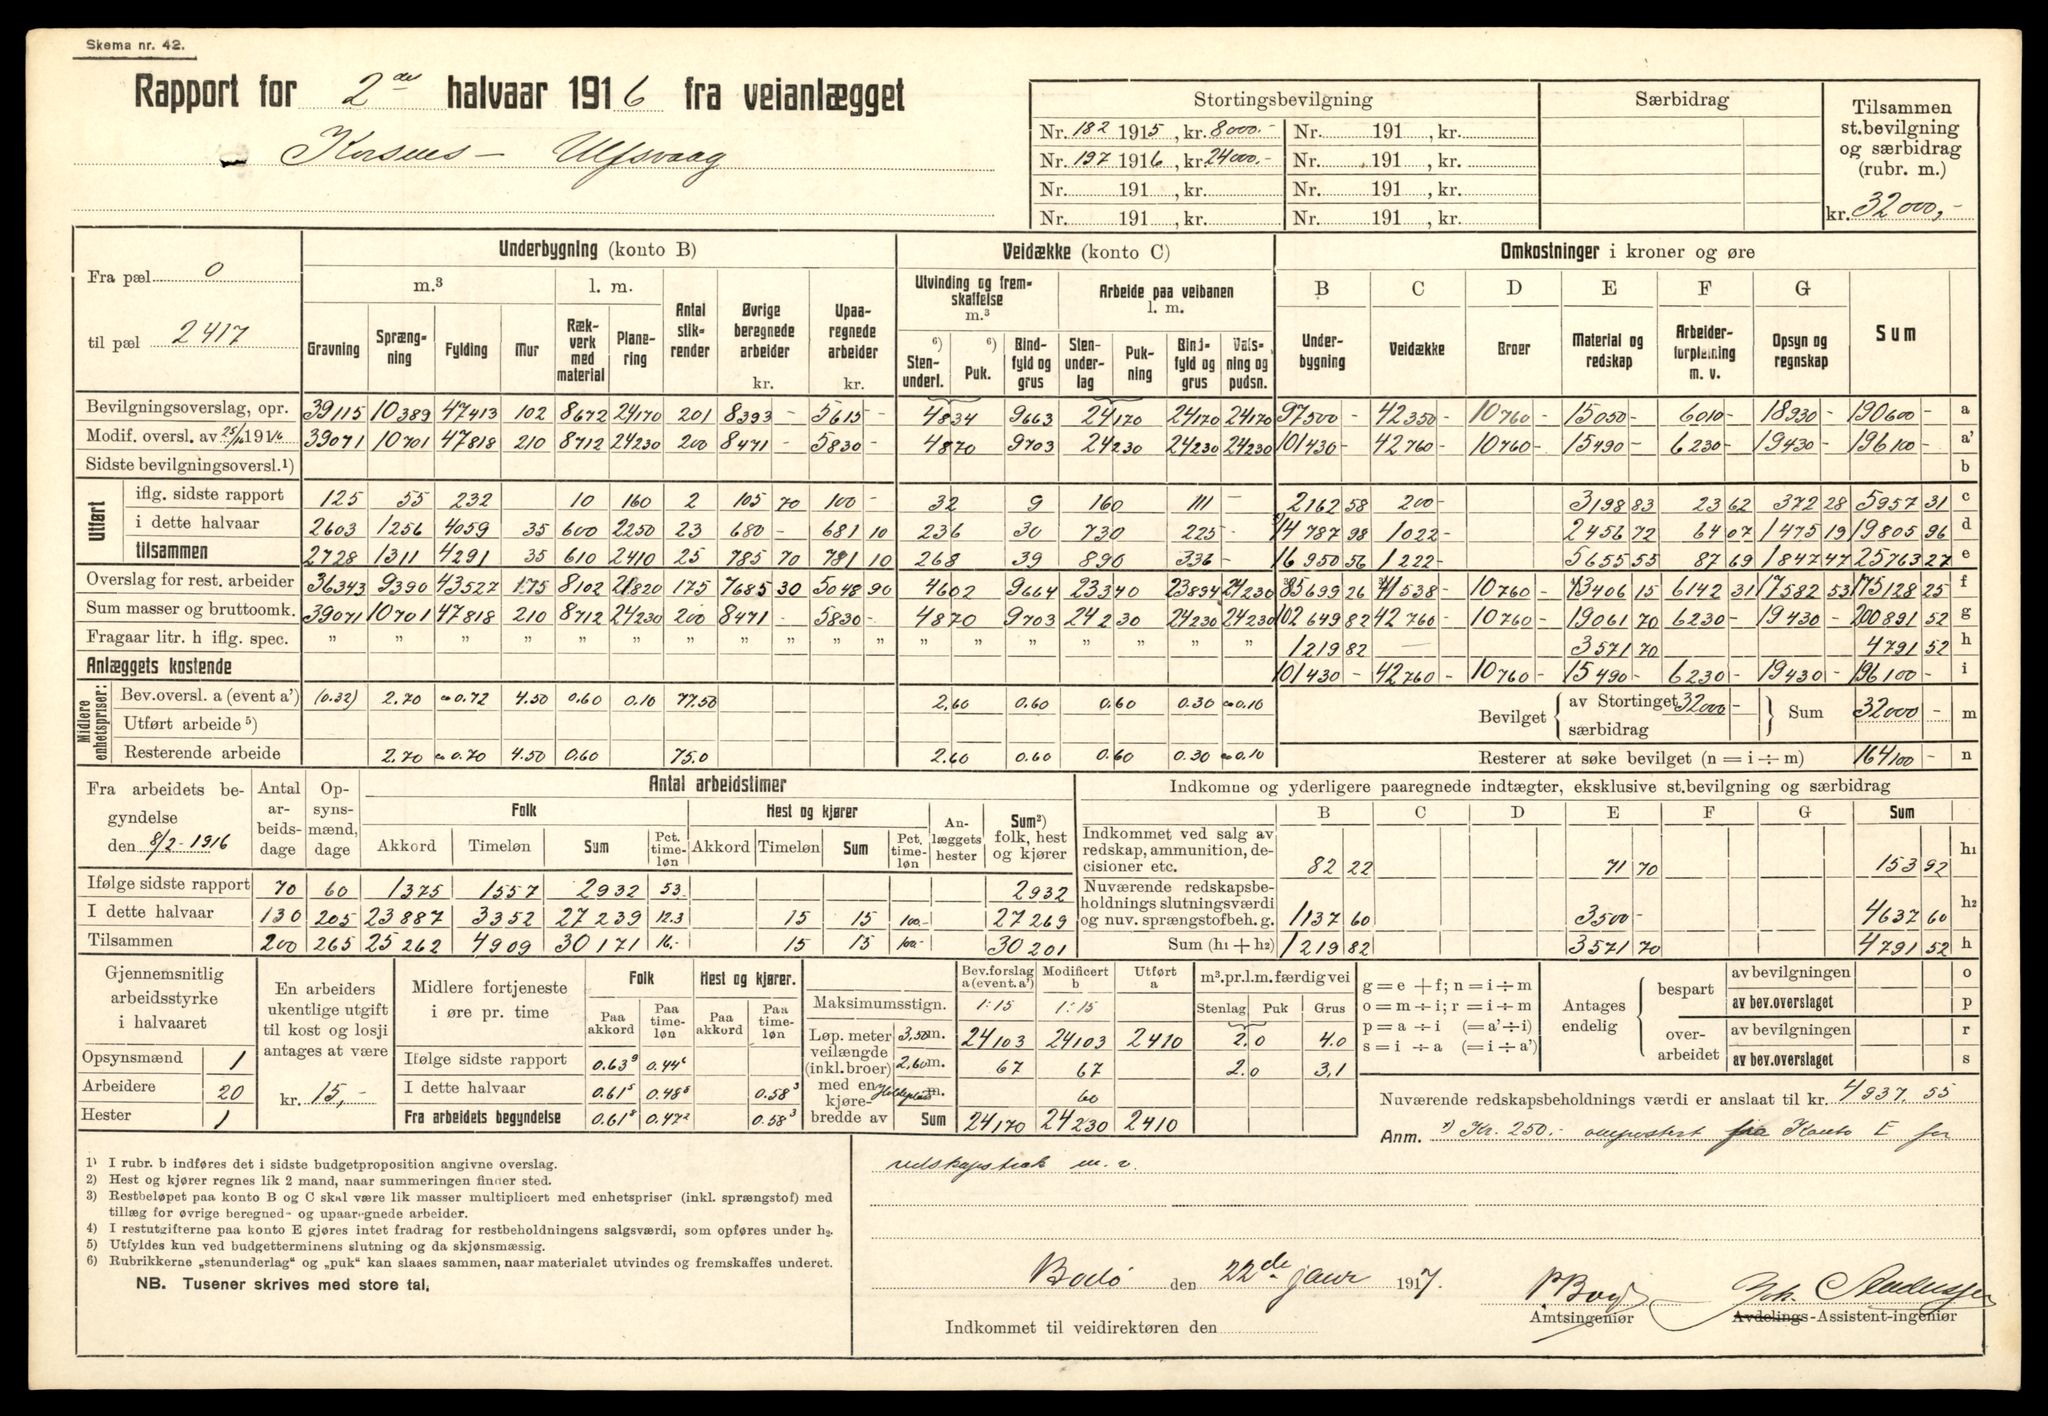 Skema nr. 42.
Rapport for 2det halvaar 1916 fra veianlægget
Korsnes - Ulfsvaag
Stortingsbevilgning Særbidrag Tilsammen st.bevilgning og særbidrag (rubr. m.)
Nr. 182 1915, kr. 8000.- Nr. 191 , kr.
Nr. 197 1916, kr. 24000.- Nr. 191 , kr.
Nr. 191 , kr. Nr. 191 , kr.
Nr. 191 , kr. Nr. 191 , kr.
kr. 32000,-
Fra pæl 0
til pæl 2417
Underbygning (konto B) Veidække (konto C) Omkostninger i kroner og øre
m.³ l. m. Antal stikrender Øvrige beregnede arbeider kr. Upaaregnede arbeider kr.
Gravning Sprængning Fylding Mur Rækverk med material Planering
Utvinding og fremskaffelse m.³ Arbeide paa veibanen l. m.
6) Stenunderl. 6) Puk. Bindfyld og grus Stenunderlag Pukning Bindfyld og grus Valsning og pudsn.
B C D E F G Sum
Underbygning Veidække Broer Material og redskap Arbeiderforpleining m. v. Opsyn og regnskap
Bevilgningsoverslag, opr. 39115 10389 47413 102 8672 24170 201 8393 - 5615 - 4834 9663 24170 24170 24170 97500 - 42350 - 10760 - 15050 - 6010 - 18930 - 190600 - a
Modif. oversl. av 25/6 1916 39071 10701 47818 210 8712 24230 200 8471 - 5830 - 4870 9703 24230 24230 24230 101430 - 42760 - 10760 - 15490 - 6230 - 19430 - 196100 - a'
Sidste bevilgningsoversl.¹) b
Utført
iflg. sidste rapport 125 55 232 10 160 2 105 70 100 - 32 9 160 111 - 2162 58 200 - 3198 83 23 62 372 28 5957 31 c
i dette halvaar 2603 1256 4059 35 600 2250 23 680 - 681 10 236 30 730 225 - 14787 98 1022 - 2456 72 64 07 1475 19 19805 96 d
tilsammen 2728 1311 4291 35 610 2410 25 785 70 781 10 268 39 890 336 - 16950 56 1222 - 5655 55 87 69 1847 47 25763 27 e
Overslag for rest. arbeider 36343 9390 43527 175 8102 21820 175 7685 30 5048 90 4602 9664 23340 23894 24230 85699 26 41538 - 10760 - 13406 15 6142 31 17582 53 175128 25 f
Sum masser og bruttoomk. 39071 10701 47818 210 8712 24230 200 8471 - 5830 - 4870 9703 24230 24230 24230 102649 82 42760 - 10760 - 19061 70 6230 - 19430 - 200891 52 g
Fragaar litr. h iflg. spec. " " " " " " " " " " " " " " " " " 1219 82 — 3571 70 4791 52 h
Anlæggets kostende 101430 - 42760 - 10760 - 15490 - 6230 - 19430 - 196100 - i
Midlere enhetspriser:
Bev.oversl. a (event a') (0.32) 2.70 ca 0.72 4.50 0.60 0.10 77.50 2.60 0.60 0.60 0.30 ca 0.10
Utført arbeide ⁵)
Resterende arbeide 2.70 ca 0.70 4.50 0.60 75.0 2.60 0.60 0.60 0.30 ca 0.10
Bevilget av Stortinget 32000 - særbidrag Sum 32000 - m
Resterer at søke bevilget (n = i ÷ m) 164100 - n
Fra arbeidets begyndelse den 8/2 - 1916
Antal arbeidsdage Opsynsmænd, dage Antal arbeidstimer
Folk Hest og kjører Anlæggets hester Sum²) folk, hest og kjører
Akkord Timeløn Sum Pct. timeløn Akkord Timeløn Sum Pct. timeløn
Ifølge sidste rapport 70 60 1375 1557 2932 53. 2932
I dette halvaar 130 205 23887 3352 27239 12.3 15 15 100.- 27269
Tilsammen 200 265 25262 4909 30171 16.- 15 15 100.- 30201
Indkomne og yderligere paaregnede indtægter, eksklusive st.bevilgning og særbidrag
B C D E F G Sum
Indkommet ved salg av redskap, ammunition, decisioner etc. 82 22 71 70 153 92 h₁
Nuværende redskapsbeholdnings slutningsværdi og nuv. sprængstofbeh. g. 1137 60 3500 - 4637 60 h₂
Sum (h₁ + h₂) 1219 82 3571 70 4791 52 h
Gjennemsnitlig arbeidsstyrke i halvaaret
Opsynsmænd 1
Arbeidere 20
Hester 1
En arbeiders ukentlige utgift til kost og losji antages at være
kr. 15,-
Midlere fortjeneste i øre pr. time
Folk Hest og kjører.
Paa akkord Paa timeløn Paa akkord Paa timeløn
Ifølge sidste rapport 0.63⁹ 0.44⁶
I dette halvaar 0.61⁵ 0.48⁵ 0.58³
Fra arbeidets begyndelse 0.61⁸ 0.47² 0.58³
Bev.forslag a (event. a') Modificert b Utført a m³.pr.l.m.færdig vei
Maksimumsstign. 1:15 1:15 Stenlag Puk Grus
Løp. meter veilængde (inkl. broer) med en kjørebredde av
3,50 m. 24103 24103 2410 2.0 4.0
2,60 m. 67 67 2.0 3,1
m. 60
Sum 24170 24230 2410
g = e + f; n = i ÷ m
o = m ÷ i; r = i ÷ m
p = a ÷ i (= a' ÷ i)
s = i ÷ a (= i ÷ a')
Antages endelig
bespart av bevilgningen o
av bev.overslaget p
overarbeidet av bevilgningen r
av bev.overslaget s
Nuværende redskapsbeholdnings værdi er anslaat til kr. 4937.55
Anm. Kr. 250.- ompostert fra Konto E for
redskapstræk m. v.
1) I rubr. b indføres det i sidste budgetproposition angivne overslag.
2) Hest og kjører regnes lik 2 mand, naar summeringen finder sted.
3) Restbeløpet paa konto B og C skal være lik masser multiplicert med enhetspriser (inkl. sprængstof) med
tillæg for øvrige beregned- og upaaregnede arbeider.
4) I restutgifterne paa konto E gjøres intet fradrag for restbeholdningens salgsværdi, som opføres under h₂.
5) Utfyldes kun ved budgetterminens slutning og da skjønsmæssig.
6) Rubrikkerne „stenunderlag" og „puk" kan slaaes sammen, naar materialet utvindes og fremskaffes underet.
NB. Tusener skrives med store tal.
Bodø den 22de jaur 1917.
Amtsingeniør Avdelings-Assistent-ingeniør
Indkommet til veidirektøren den